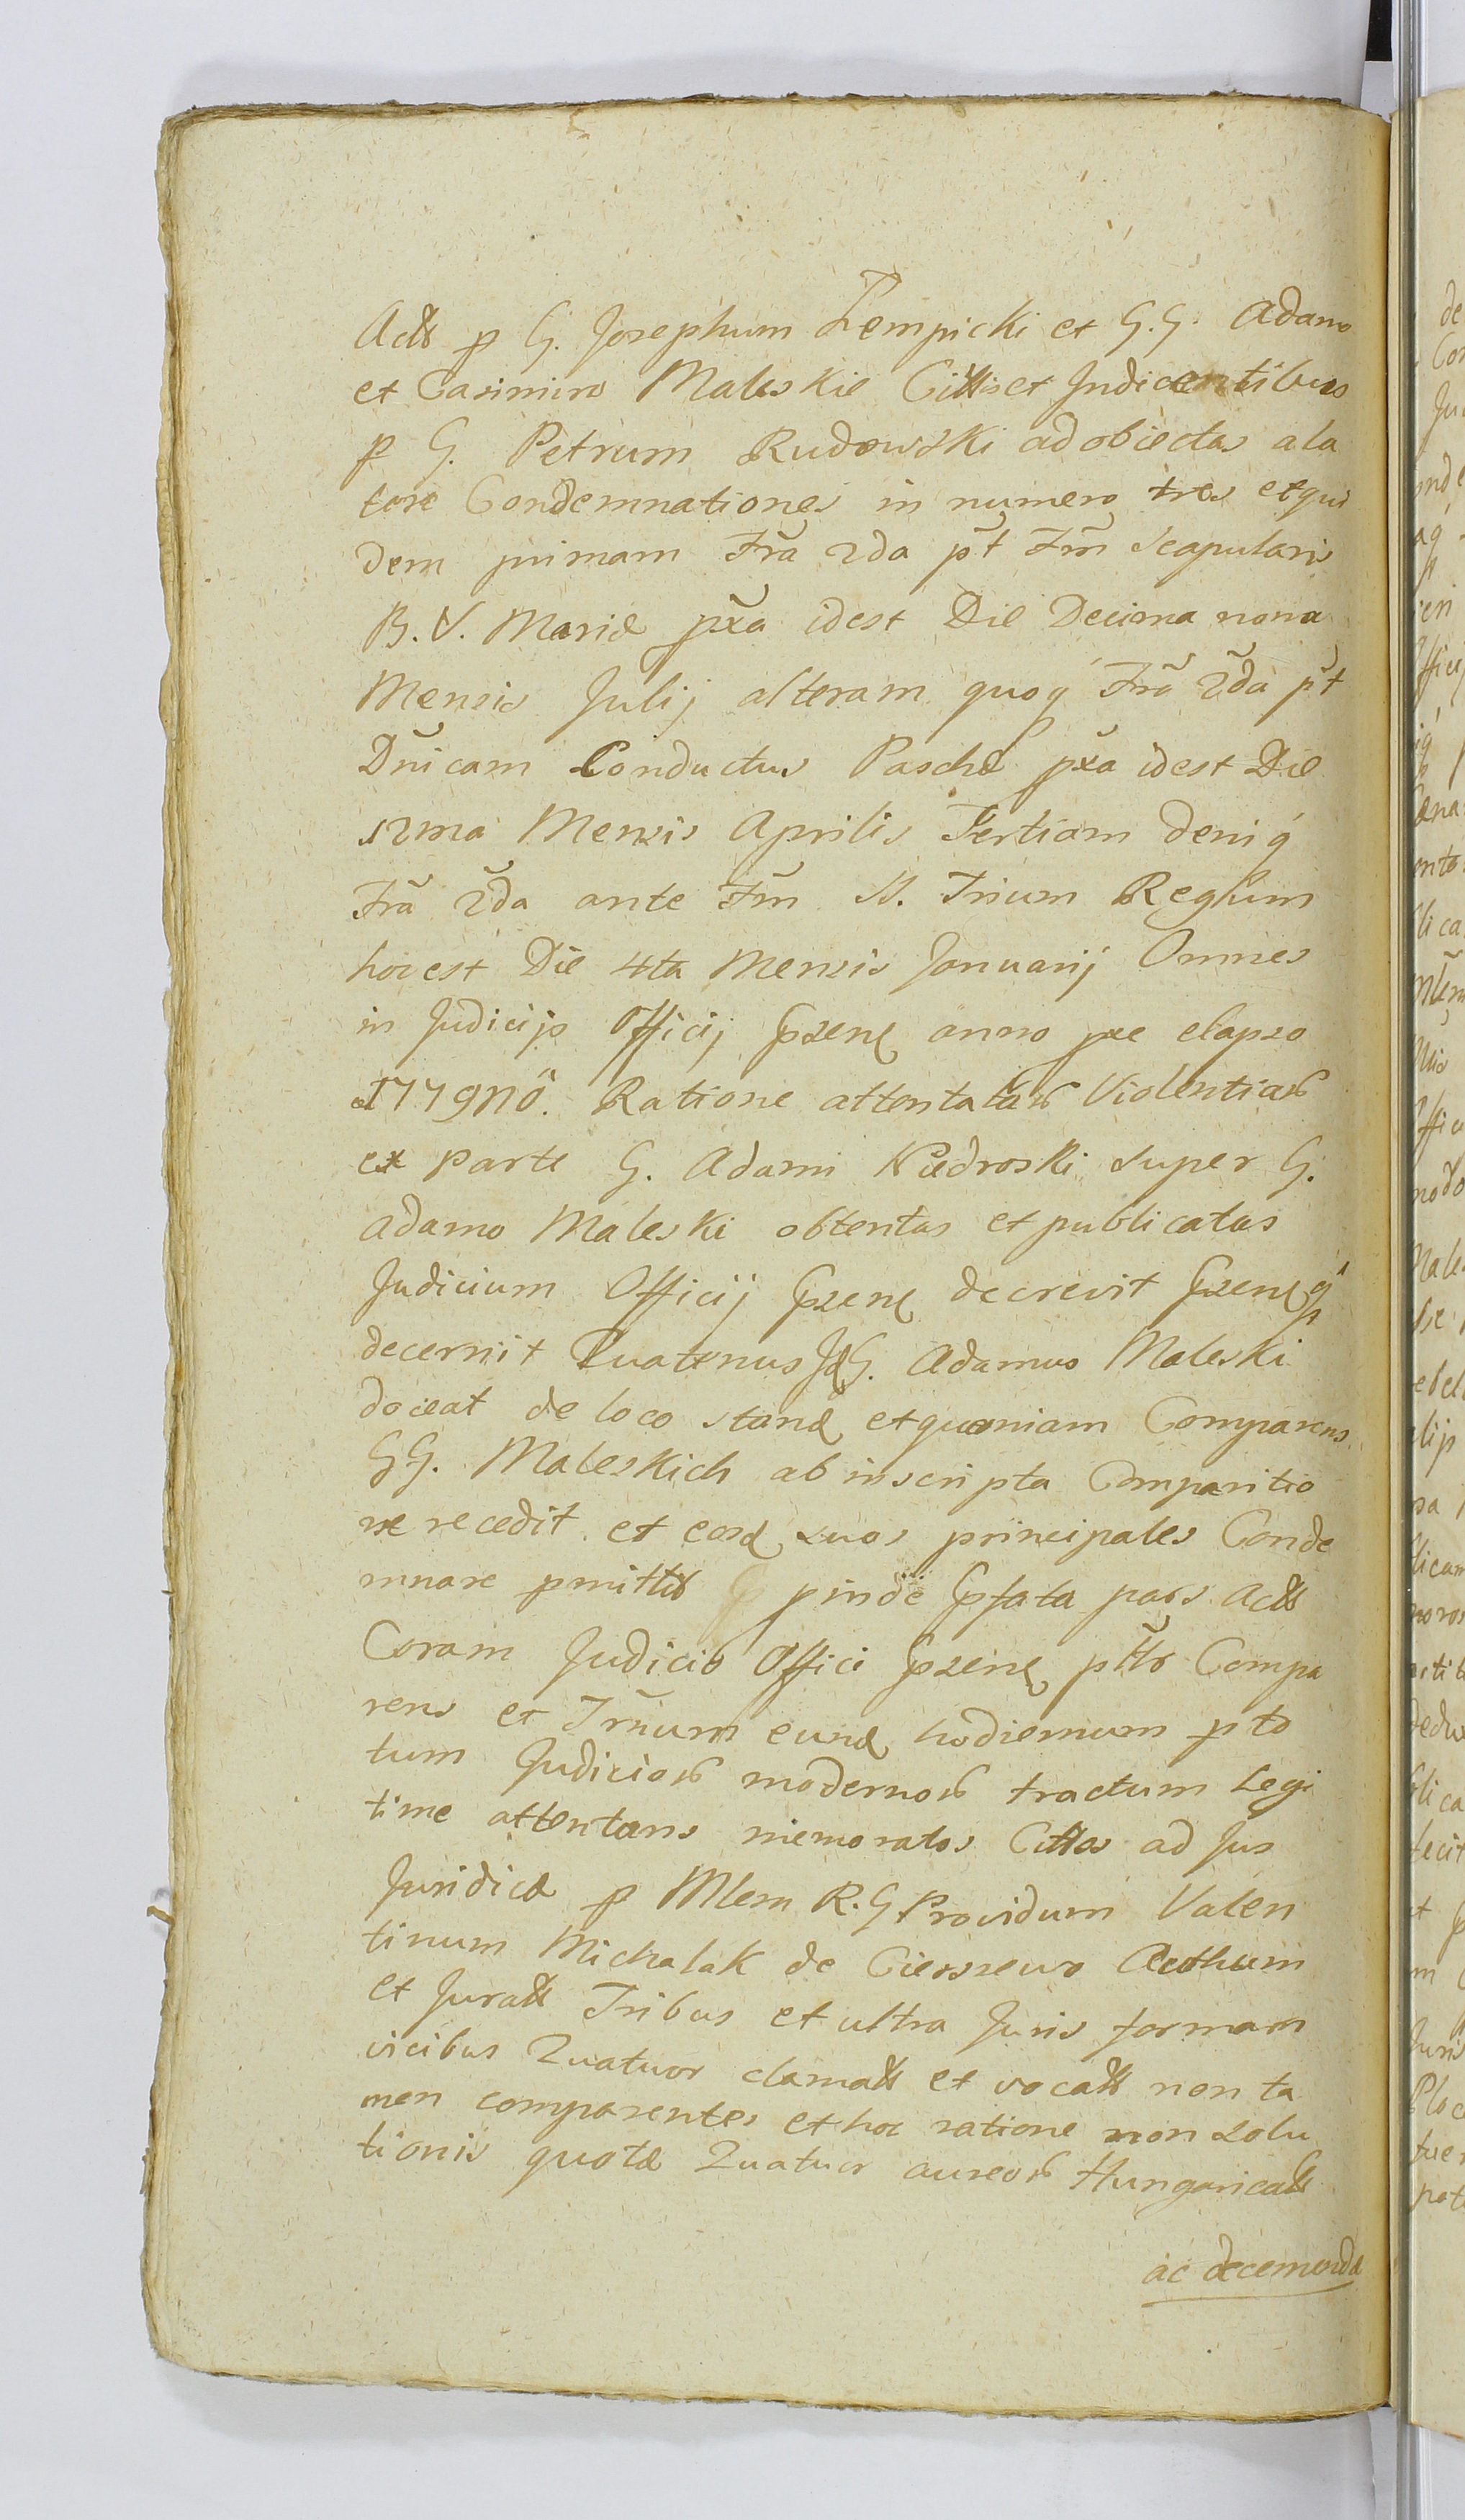 Actt p G. Josephum Łempicki et G.G. Adamo
et Casimiro Maleskie Cittis et Judicentibus
p G. Petrum Rudowski ad obiectas ala
tore Condemnationes in numero tres et qui
dem primam Fra 2da pt Fm Scapularis
B. V. Mariæ pxa idest Die Decima nona
Mensis Julij alteram quoq Fra 2da pt
Dnicam Conductus Paschæ pxa idest Die
12ma Mensis Aprilis Tertiam deniq
Fra 2da ante Fm SS. Trium Regum
hoc est Die 4ta Mensis Januarij Omnes
in Judicijs Officij Gpzenę anno pxe elapso
1779no. Ratione attentatar Violentiar
ex parte G. Adami Niedroski super G.
Adamo Maleski obtentas et publicatas
Judicium Officij Gpzenę decrevit Gpzenęq
decernit Quatenus Jd G. Adamus Maleski
doceat de loco standę et quoniam Comparens
GG. Maleskich ab inscripta Comparitio
ne recedit et eosdę suos principales Conde
mnare pmittit pinde Gpfata pars Actt
Coram Judicio Offici Gpzenę pttr Compa
rens et Trnum eundę hodiernum p to
tum Judicior modernor tractum Legi
time attentans memoratos Cittos ad Jus
Juridicæ p Mlem R. G. Providum Valen
tinum Michalak de Cieszewo Aucthum
et Juratt Tribus et ultra Juris formam
vicibus Quatuor clamatt et vocatt non ta
men comparentes et hoc ratione non Solu
tionis quotæ Quatuor aureor Hungaricatt
ac decernendæ